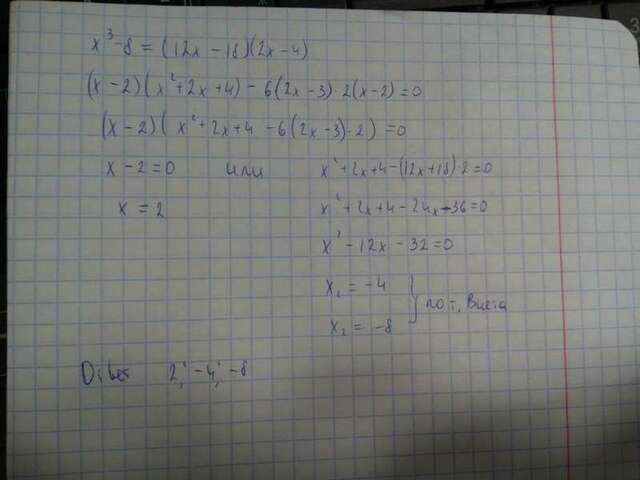 x³-8 = (12x - 18)(2x - 4)
(x - 2)(x²+2x+4) - 6(2x-3)·2(x-2)=0
(x-2)(x²+2x+4 -6(2x-3)·2) =0
x -2=0 или x²+2x+4-(12x+18)·2=0
x = 2 x²+2x+4-24x-36=0
x²-12x-32=0
x₁ = -4
x₂ = -8 } по т. Виета
Ответ 2; -4; -8